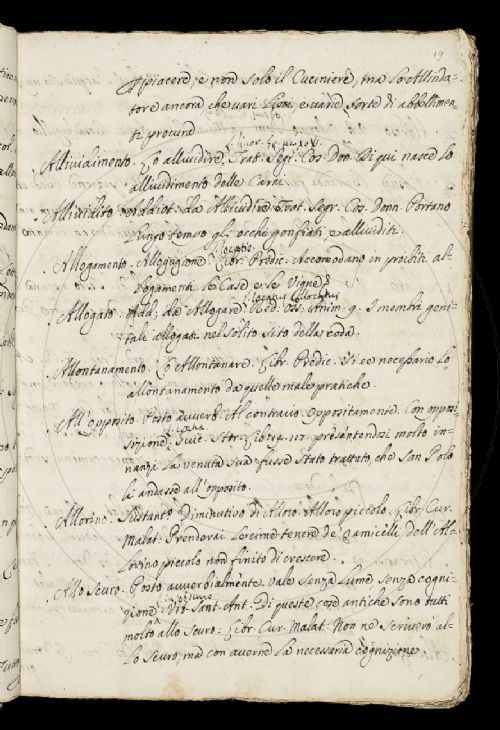 19
piacere, e non solo il Cuciniere, ma lo Allinda-
tore ancora che vari e varie sorte di abbellimen-
ti procura
Allividimento. Lo allividire, Trat. Segr. Cos. Don. Di qui nasce lo
allividimento delle Carni
Allividito. Addiet. da Allividire Trat. Segr. Cos. Donn. Portano
lungo tempo gli occhi gonfiati e allividiti.
Allogamento. Allogagione. Libr. Predic. Accomodano in proibiti al-
logamenti le Case e le Vigne
Allogato. Add. da Allogare. Red. Oss. Anim. 9. I membri geni-
tali allogati nel solito sito della coda.
Allontanamento. Lo Allontanare. Libr. Predic. Si è necessario lo
allontanamento da quelle male pratiche.
All'opposito. Posto avverb. Al contrario. Oppositamente. Con opposi
sizione. Guic. Stor. Lib. 19. 117. presentendosi molto in-
nanzi la venuta sua fusse stato trattato, che San Polo
li andasse all'opposito.
Allorino. Sustant. Diminutivo di Alloro. Alloro piccolo. Libr. Cur.
Malat. Prenderai le cime tenere de' ramicelli dell'Al-
lorino piccolo non finito di crescere.
Allo scuro. Posto avverbialmente. vale senza lume senza cogni-
zione. Vit. Sant. Ant. Di queste cose antiche sono tutti
molto allo scuro. Libr. Cur. Malat. Non ne scrivero al-
lo scuro, ma con averne la necessaria cognizione.